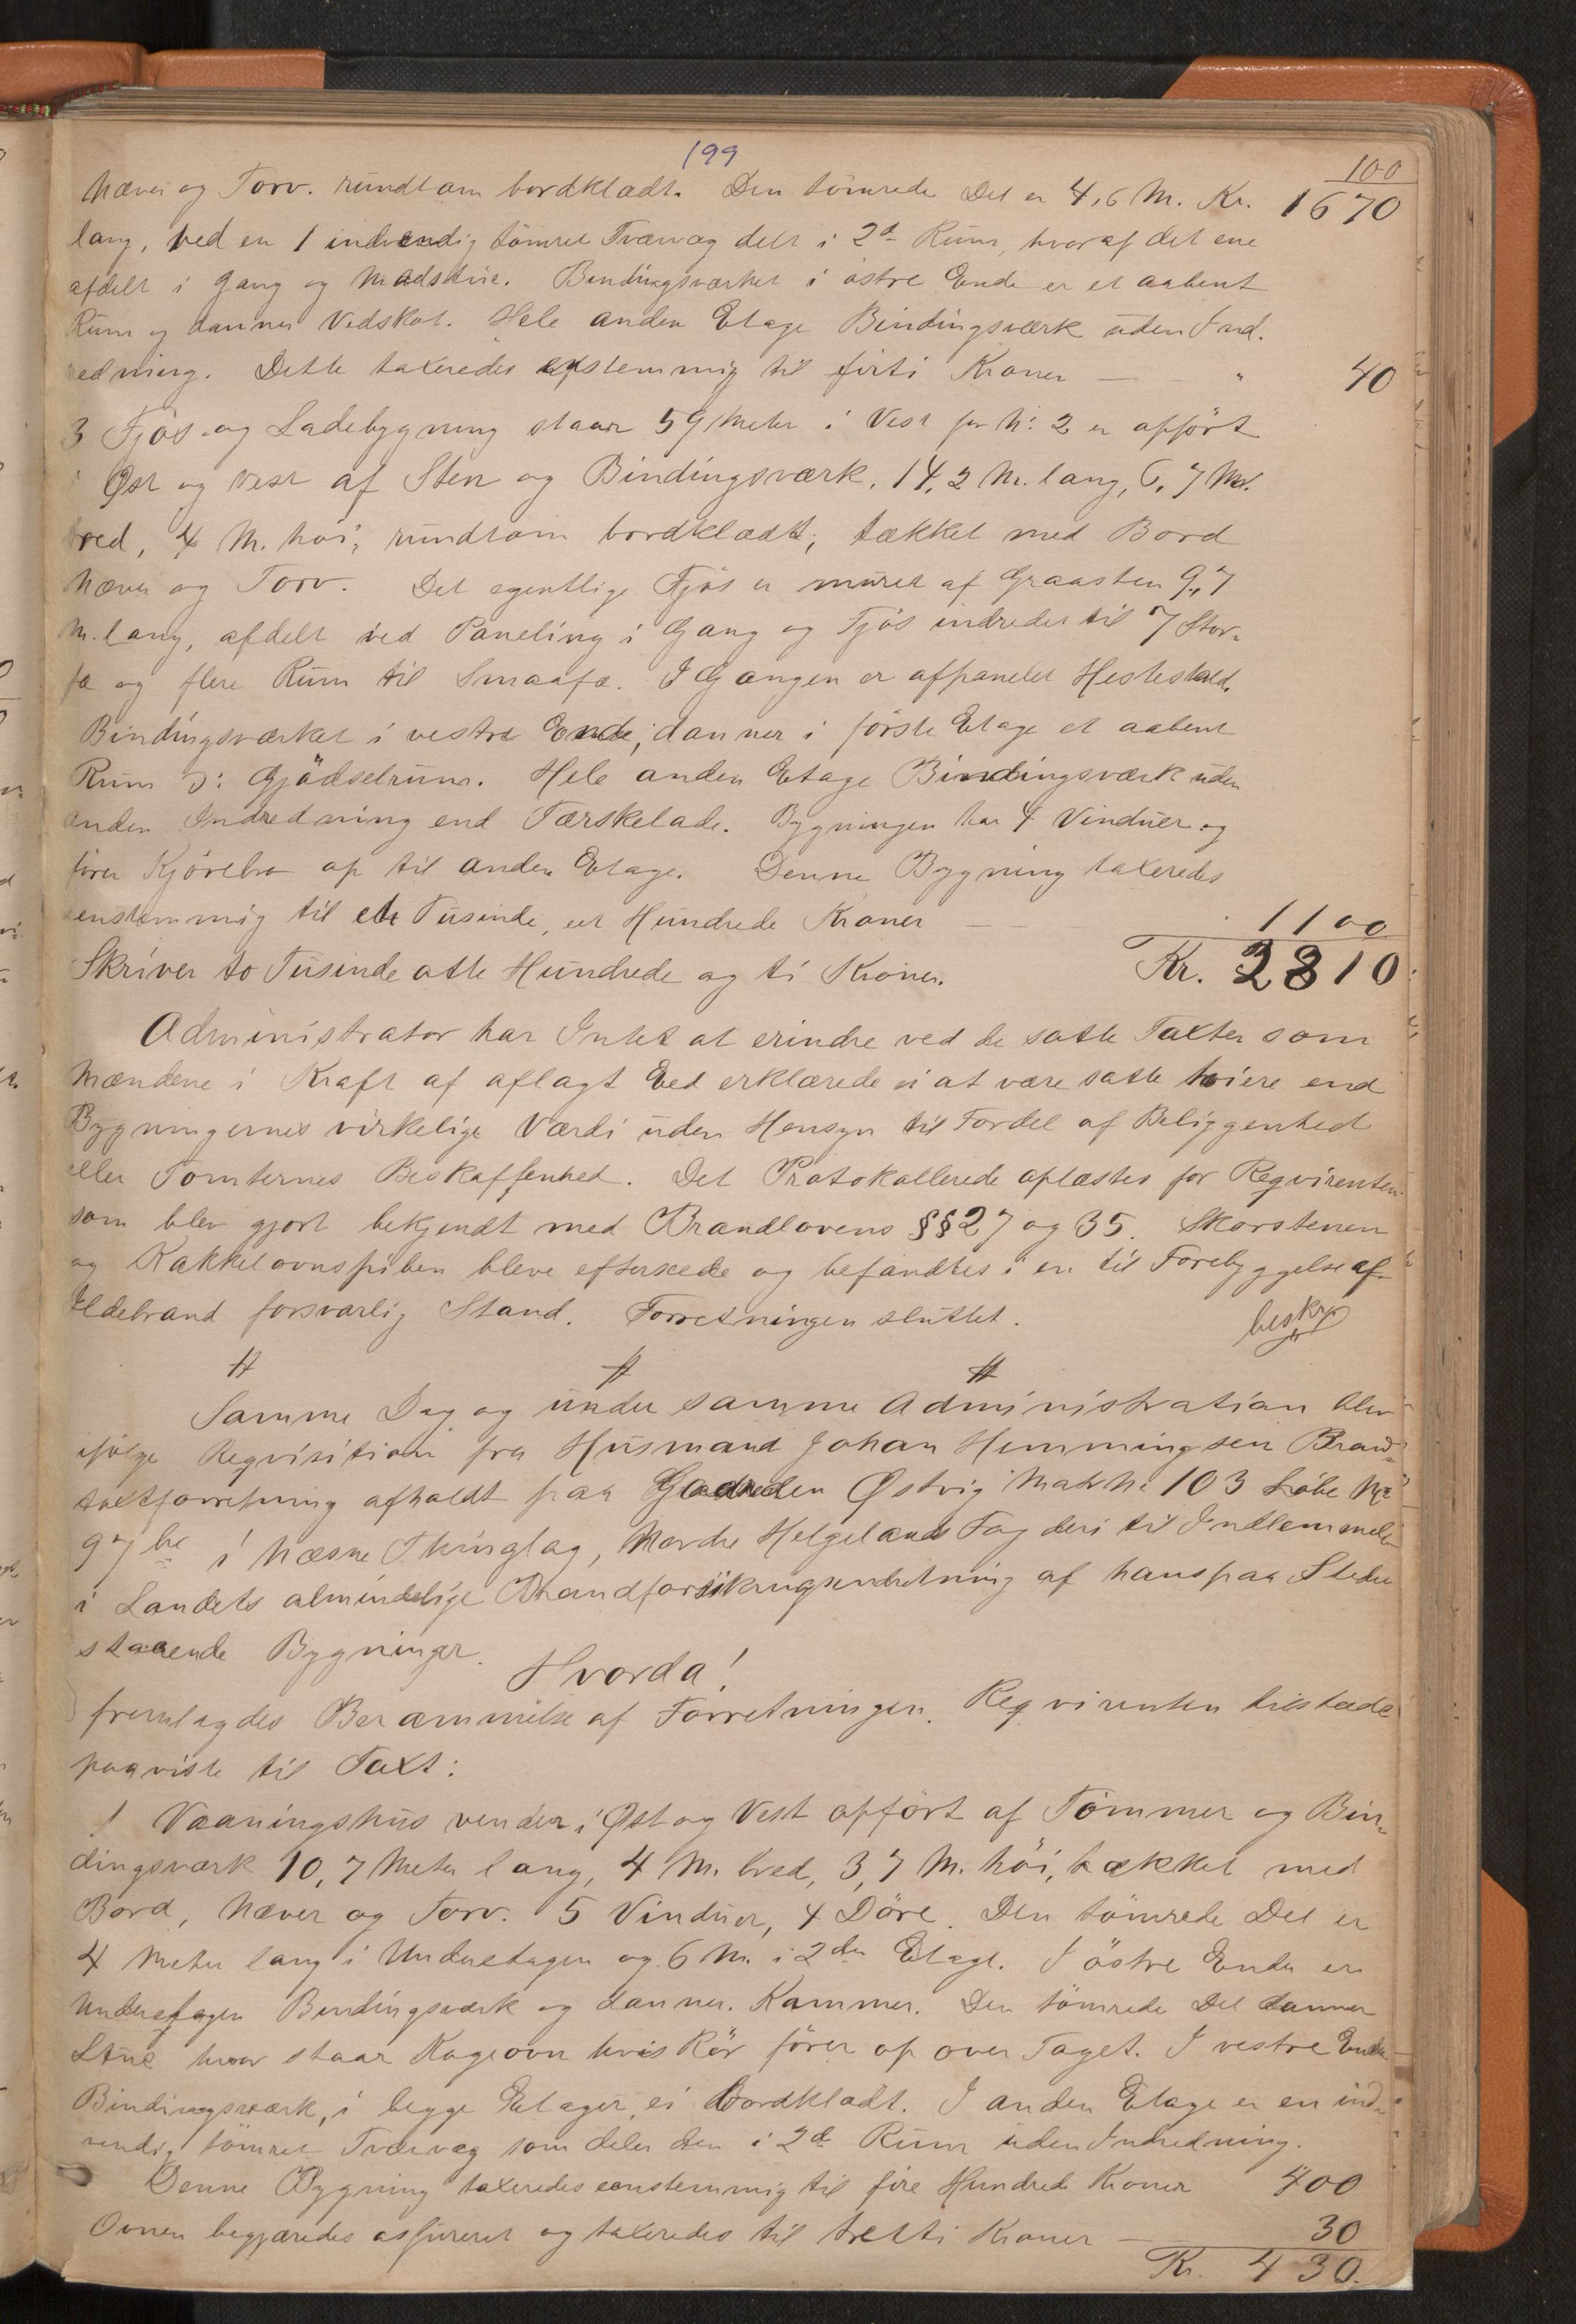 199
100
Næver og Torv. rundtom bordklædt. Den tömrede Del er 4,6 M. Kr. 1670
lang, ved en 1 indvendig tömret Tværvæg delt i 2de Rum, hvoraf det ene
afdelt i Gang og Madstue. Bindingsværket i östre Ende er et aabent
Rum og danner Vedskot. Hele anden Etage Bindingsværk uden Ind-
redning. Dette taxeredes enstemmig til firti Kroner — - " 40
3 Fjös og Ladebygning staar 59 Meter i Vest for No 2 er opfört
i Öst og Vest af Sten og Bindingsværk, 14,2 M. lang, 6,7 M.
bred, 4 M. höi, rundtom bordklædt, tækket med Bord
Næver og Torv. Det egentlige Fjös er muret af Graasten 9,7
M. lang, afdelt ved Paneling i Gang og Fjös indredet til 7 Stor-
fæ og flere Rum til Smaafæ. I Gangen er afpanelet Hestestald.
Bindingsværket i vestre Ende, danner i förste Etage et aabent
Rum ɔ: Gjödselrum. Hele anden Etage Bindingsværk uden
anden Indredning end Tærskelade. Bygningen har 4 Vinduer og
fører Kjörebro op til anden Etage. Denne Bygning taxeredes
enstemmig til et Tusinde, et Hundrede Kroner — — 1100
Skriver to Tusinde otte Hundrede og ti Kroner. Kr. 2810
Administrator har Intet at erindre ved de satte Taxter som
Mændene i Kraft af aflagt Eed erklærede ei at være satte höiere end
Bygningernes virkelige Værdi uden Hensyn til Fordel af Beliggenhed
eller Tomternes Beskaffenhed. Det Protokollerede oplæstes for Reqvirenten
som blev gjort bekjendt med Brandlovens §§ 27 og 35. Skorstenen
og Kakkelovnspiben bleve efterseede og befandtes i en til Forebyggelse af
Ildebrand forsvarlig Stand. Forretningen sluttet.
beskr
# # #
Samme Dag og under samme Administration blev
ifölge Reqvisition fra Husmand Johan Hemmingsen Brand-
taxtforretning afholdt paa Gaarden Østvig Matr No 103 Löbe No
97 be i Næsne Thinglag, Nordre Helgelands Fogderi til Indlemmelse
i Landets almindelige Brandforsikringsindretning af hans paa Stedet
staaende Bygninger.
Hvorda!
fremlagdes Berammelse af Forretningen. Reqvirenten tilstede
paaviste til Taxt:
1 Vaaningshus vender i Øst og Vest opfört af Tömmer og Bin-
dingsværk 10,7 Meter lang, 4 M. bred, 3,7 M. höi, tækket med
Bord, Næver og Torv. 5 Vinduer, 4 Döre. Den tömrede Del er
4 Meter lang i Underetagen og 6 M. i 2den Etage. I östre Ende er
Underetagen Bindingsværk og danner Kammer. Den tömrede Del danner
Stue hvor staar Kogeovn hvis Rör förer op over Taget. I vestre Ende
Bindingsværk, i begge Etager, ei bordklædt. I anden Etage er en ind-
vendig tömret Tværvæg som deler den i 2de Rum uden Indredning.
Denne Bygning taxeredes eenstemmig til fire Hundrede Kroner 400
Ovnen begjæredes assureret og taxeredes til tretti Kroner — 30
Kr. 430.